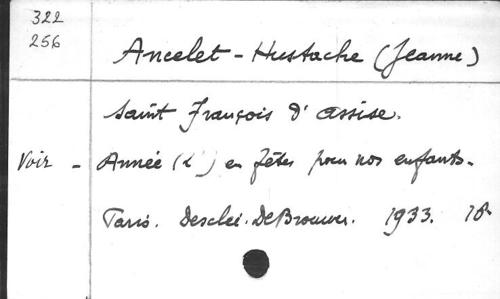 322
256
Ancelet-Hustache (Jeanne)
Saint François d'Assise.
Voir - Année (L') en fêtes pour nos enfants.
Paris. Desclée. De Brouwer. 1933. 18-